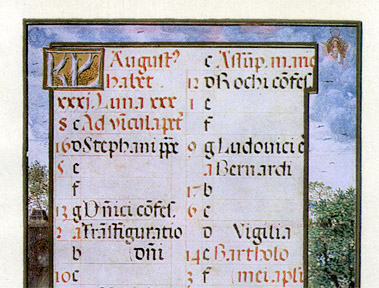 KL August⁹
habet
xxxj. Luna xxx
8 c Ad vĩcula petr̃
16 d Stephani ppe
5 e
f
13 g Dñici cõfes.
2 a Trãsfiguratio
b dñi
10 c
c Assũp. marie
12 d Rochi cõfes
1 e
f
9 g Ludovici
a Bernardi
17 b
6 c
d Vigilia
14 e Bartholo
3 f mei apli